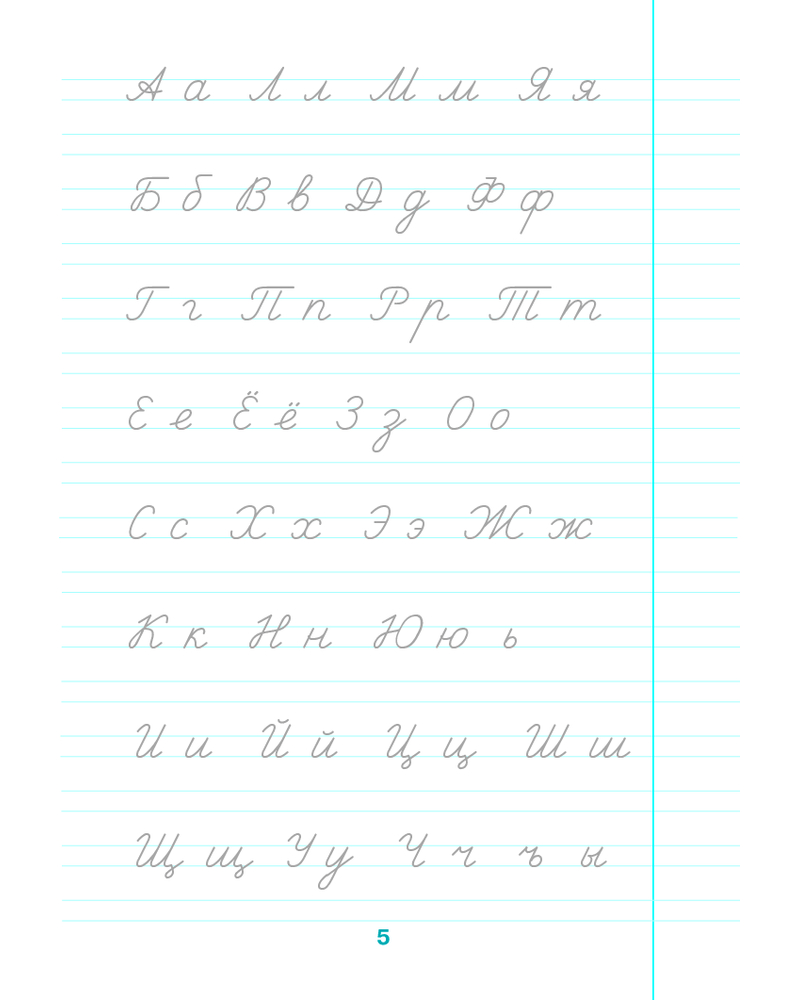 А а Л л М м Я я
Б б В в Д д Ф ф
Г г П п Р р Т т
Е е Ё ё З з О о
С с Х х Э э Ж ж
К к Н н Ю ю ь
И и Й й Ц ц Ш ш
Щ щ У у Ч ч ъ ы
5